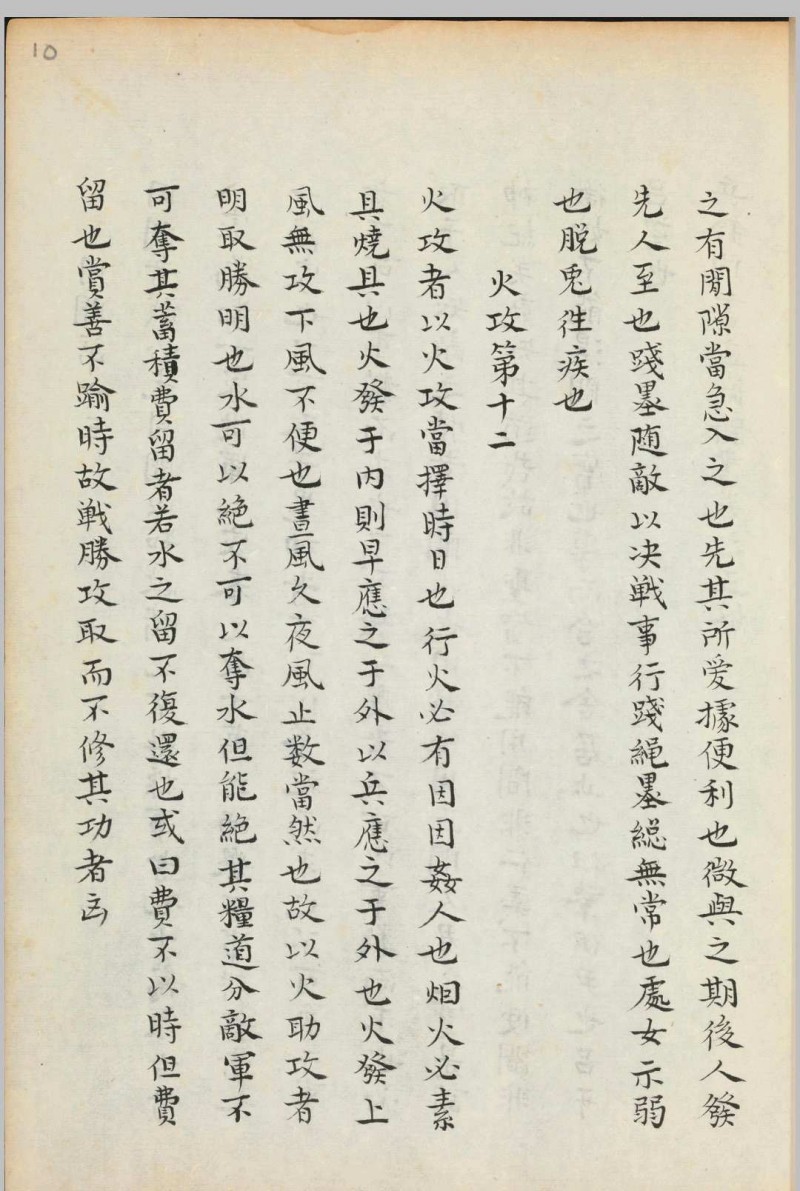 10
之有閒隙當急入之也先其所爱據便利也微與之期後人發
先人至也踐墨随敵以决戦事行踐縄墨縂無常也處女示弱
也脱兎徃疾也
火攻第十二
火攻者以火攻當擇時日也行火必有因因姦人也烟火必素
具燒具也火發于内則早應之于外以兵應之于外也火發上
風無攻下風不便也晝風久夜風止数當然也故以火助攻者
明取勝明也水可以絶不可以奪水但能絶其糧道分敵軍不
可奪其蓄積費留者若水之留不復還也或曰費不以時但費
留也賞善不踰時故戦勝攻取而不修其功者㐫